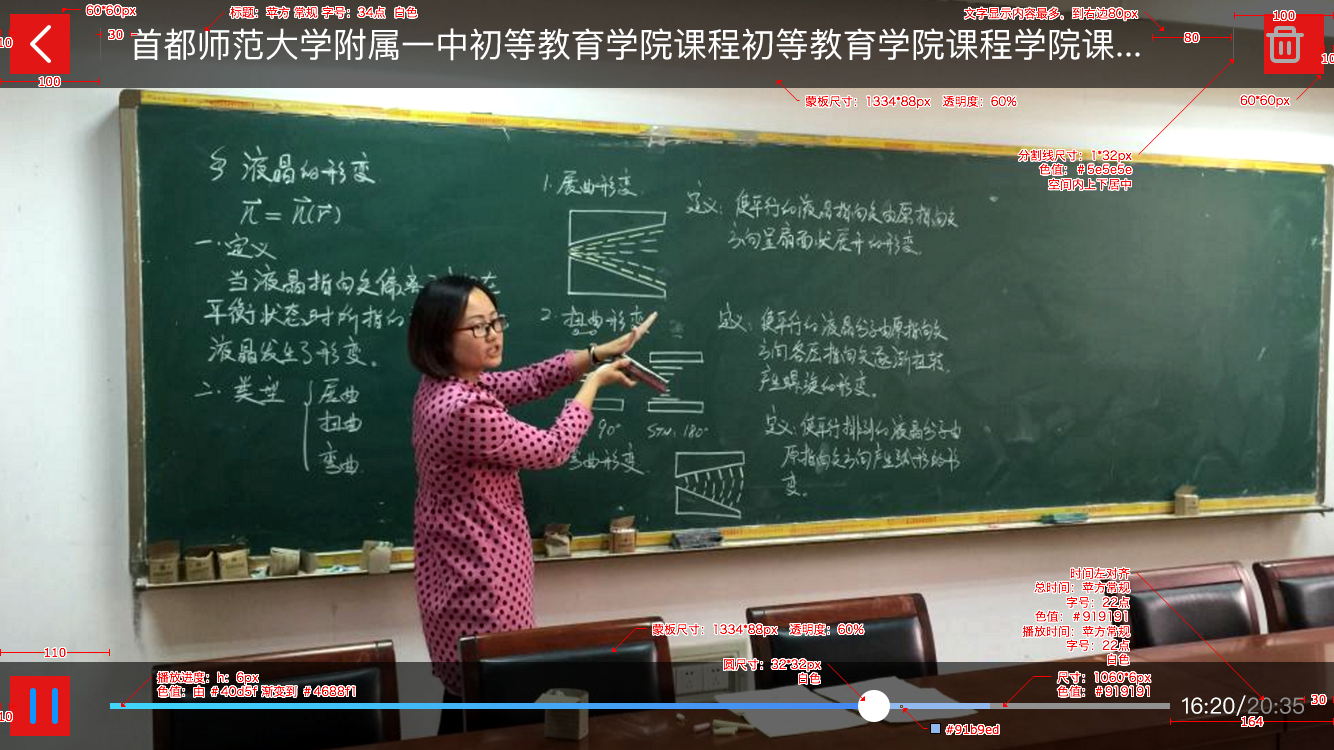 60*60px
标题：苹方 常规 字号：34点 白色
文字显示内容最多，到右边80px
100
10
30
首都师范大学附属一中初等教育学院课程初等教育学院课程学院课...
80
10
100
蒙板尺寸：1334*88px 透明度：60%
60*60px
分割线尺寸：1*32px
色值：#5e5e5e
空间内上下居中
§ 液晶的形变
n = n(r)
一.定义
当液晶指向矢偏离
平衡状态时所指的
液晶发生了形变。
二.类型
展曲
扭曲
弯曲
1.展曲形变
定义：使平行的液晶指向矢由原指向矢
方向呈扇面状展开的形变。
2.扭曲形变
定义：使平行的液晶分子由原指向矢
方向各层指向矢逐渐扭转，
产生螺旋的形变。
90°
STN: 180°
弯曲形变
定义：使平行排列的液晶分子由
原指向矢方向产生弧形的形
变。
时间左对齐
总时间：苹方常规
字号：22点
色值：#919191
播放时间：苹方常规
字号：22点
白色
蒙板尺寸：1334*88px 透明度：60%
110
圆尺寸：32*32px
白色
播放进度：h：6px
色值：由 #40d5f 渐变到 #4688f1
尺寸：1060*6px
色值：#919191
10
16:20/20:35
30
164
#91b9ed